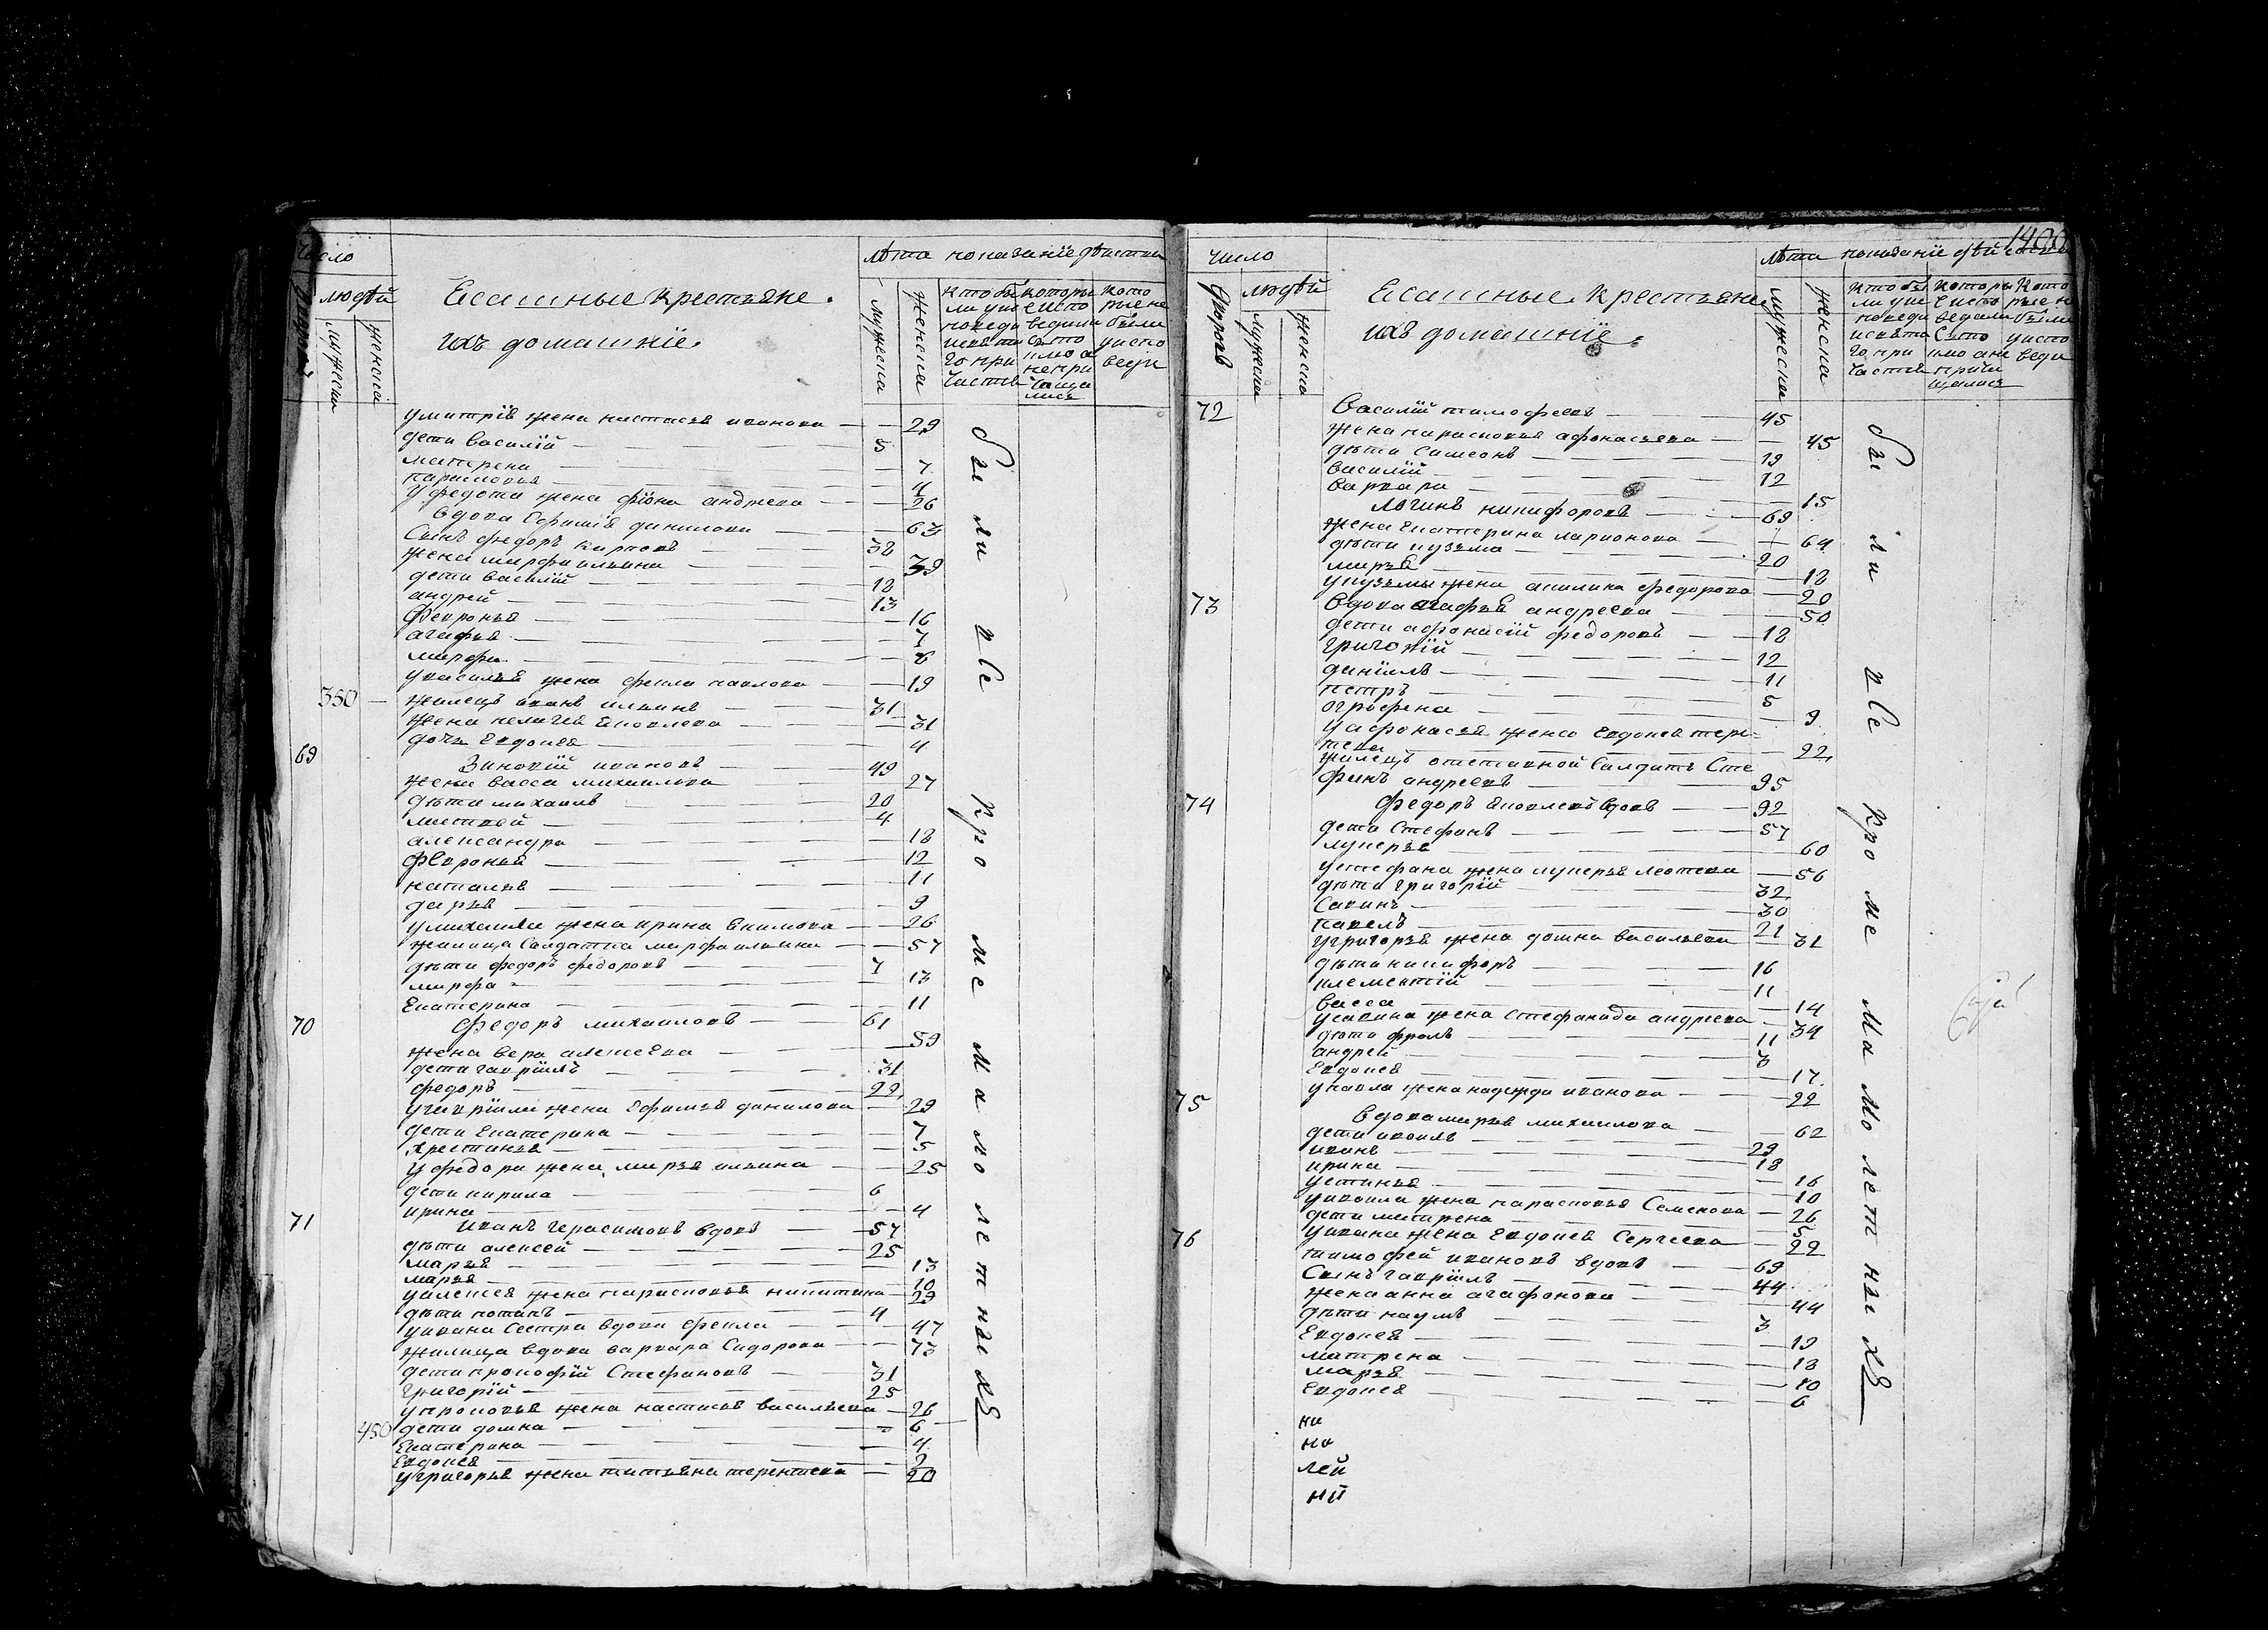 число
людѣй
мужеска
женска
Ясашные крестьяне.
ихъ домашнїе.
лѣта
показанїе дѣиства
мужеска
женска
умитрїя жена настасья иванова — 29
дети василїй — 5
матрена — 7
парасковья — 4
уфедота жена фїона андреева — 26
вдова Ефимїя данилова — 63
Сынъ федоръ карповъ — 38
жена марфа ильина — 39
дети василїй — 18
андрей — 13
Февронья — 16
агафья — 7
марфа — 6
увасилья жена фекла павлова — 19
350 — жилецъ иванъ ильинъ — 31
жена пелагея яковлева — 31
дочь Евдокея — 4
69
Зиновїй ивановъ — 49
жена васса михаилова — 27
дѣти михаилъ — 20
матвей — 4
александра — 18
февронья — 12
наталья — 11
дарья — 9
умихаила жена ирина Екимова — 26
жилица Салдатка марфа ильина — 57
дѣти федоръ федоровъ — 7
марфа — 13
Екатерина — 11
70
Федоръ михаиловъ — 61
жена вера алексеева — 59
дети гаврїилъ — 31
федоръ — 22
угаврїила жена Ефимья данилова — 29
дети Екатерина — 7
крестинья — 5
уфедора жена марья ильина — 25
дети кирила — 6
ирина — 4
71
Иванъ герасимовъ вдовъ — 57
дѣти алексей — 25
марья — 13
марья — 10
уалексея жена парасковья никитина — 29
дѣти потапъ — 4
уивана Сестра вдова фекла — 47
жилица вдова варвара Сидорова — 73
дети прокофїй Стефановъ — 31
григорїй — 25
упрокофья жена настасья васильева — 26
450 дети домна — 6
Екатерина — 4
Евдокея — 2
угригорья жена татьяна терентьева — 20
были все кроме малолетныхъ
1400
число
дворовъ
людѣй
мужеска
женска
Ясашные крестьяне
ихъ домашнїе.
лѣта
показанїе дѣйства
мужеска
женска
72
Василїй тимофеевъ — 45
жена парасковья афонасьева — 45
дѣти Симеонъ — 19
василїй — 12
варвара — 15
Логинъ никифоровъ — 69
жена Екатерина ларионова — 64
дѣти кузьма — 20
марья — 18
укузьмы жена акилина федорова — 20
73
Вдова агафья андреева — 50
дети афонасїй федоровъ — 18
григорїй — 12
данїилъ — 11
петръ — 5
огрофена — 9
уафонасья жена Евдокея терен
тева — 22
жилецъ отставной Салдатъ Сте
фанъ андреевъ — 95
74
Федоръ яковлевъ вдовъ — 92
дети Стефанъ — 57
лукерья — 60
устефана жена лукерья матвева — 56
дѣти григорїй — 32
Савинъ — 30
павелъ — 21
угригорья жена домна васильева — 31
дѣти никифоръ — 16
клементїй — 11
васса — 14
усавина жена стефанида андреева — 34
дѣти фролъ — 11
андрей — 3
Евдокея — 17
упавла жена надежда иванова — 22
75
Вдова марья михаилова — 62
дети иваилъ — 29
иванъ — 18
ирина — 16
устинья — 10
уиваила жена парасковья Семенова — 26
дети матрена — 5
уивана жена Евдокея Сергеева — 22
76
тимофей ивановъ вдовъ — 69
Сынъ гаврїилъ — 44
жена анна агафонова — 44
дѣти наумъ — 3
Евдокея — 19
матрена — 18
марья — 10
Евдокея — 6
ни
ко
лей
ый
были все кроме малолетныхъ